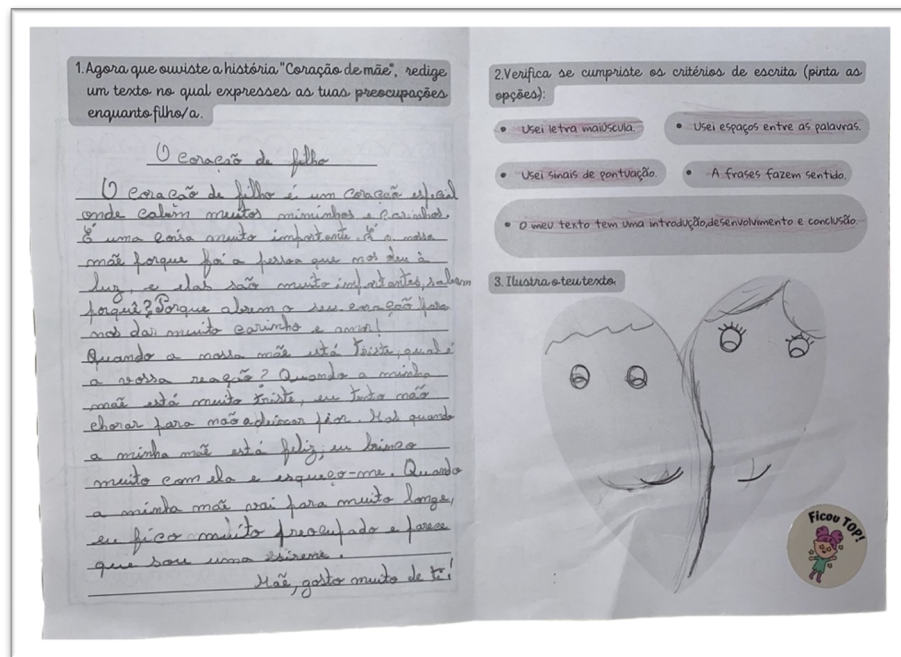 1. Agora que ouviste a história "Coração de mãe", redige
um texto no qual expresses as tuas preocupações
enquanto filho/a.
O coração de filho
O coração de filho é um coração especial
onde cabem muitos miminhos e carinhos.
É uma coisa muito importante. É a nossa
mãe porque foi a pessoa que nos deu à
luz, e elas são muito importantes, sabem
porquê? Porque abrem o seu coração para
nos dar muito carinho e amor!
Quando a nossa mãe está triste, qual é
a vossa reação? Quando a minha
mãe está muito triste, eu tento não
chorar para não a deixar pior. Mas quando
a minha mãe está feliz, eu brinco
muito com ela e esqueço-me. Quando
a minha mãe vai para muito longe,
eu fico muito preocupado e parece
que sou uma
Mãe, gosto muito de ti!
2. Verifica se cumpriste os critérios de escrita (pinta as
opções):
• Usei letra maiúscula.
• Usei espaços entre as palavras.
• Usei sinais de pontuação.
• A frases fazem sentido.
• O meu texto tem uma introdução, desenvolvimento e conclusão.
3. Ilustra o teu texto.
Ficou TOP!